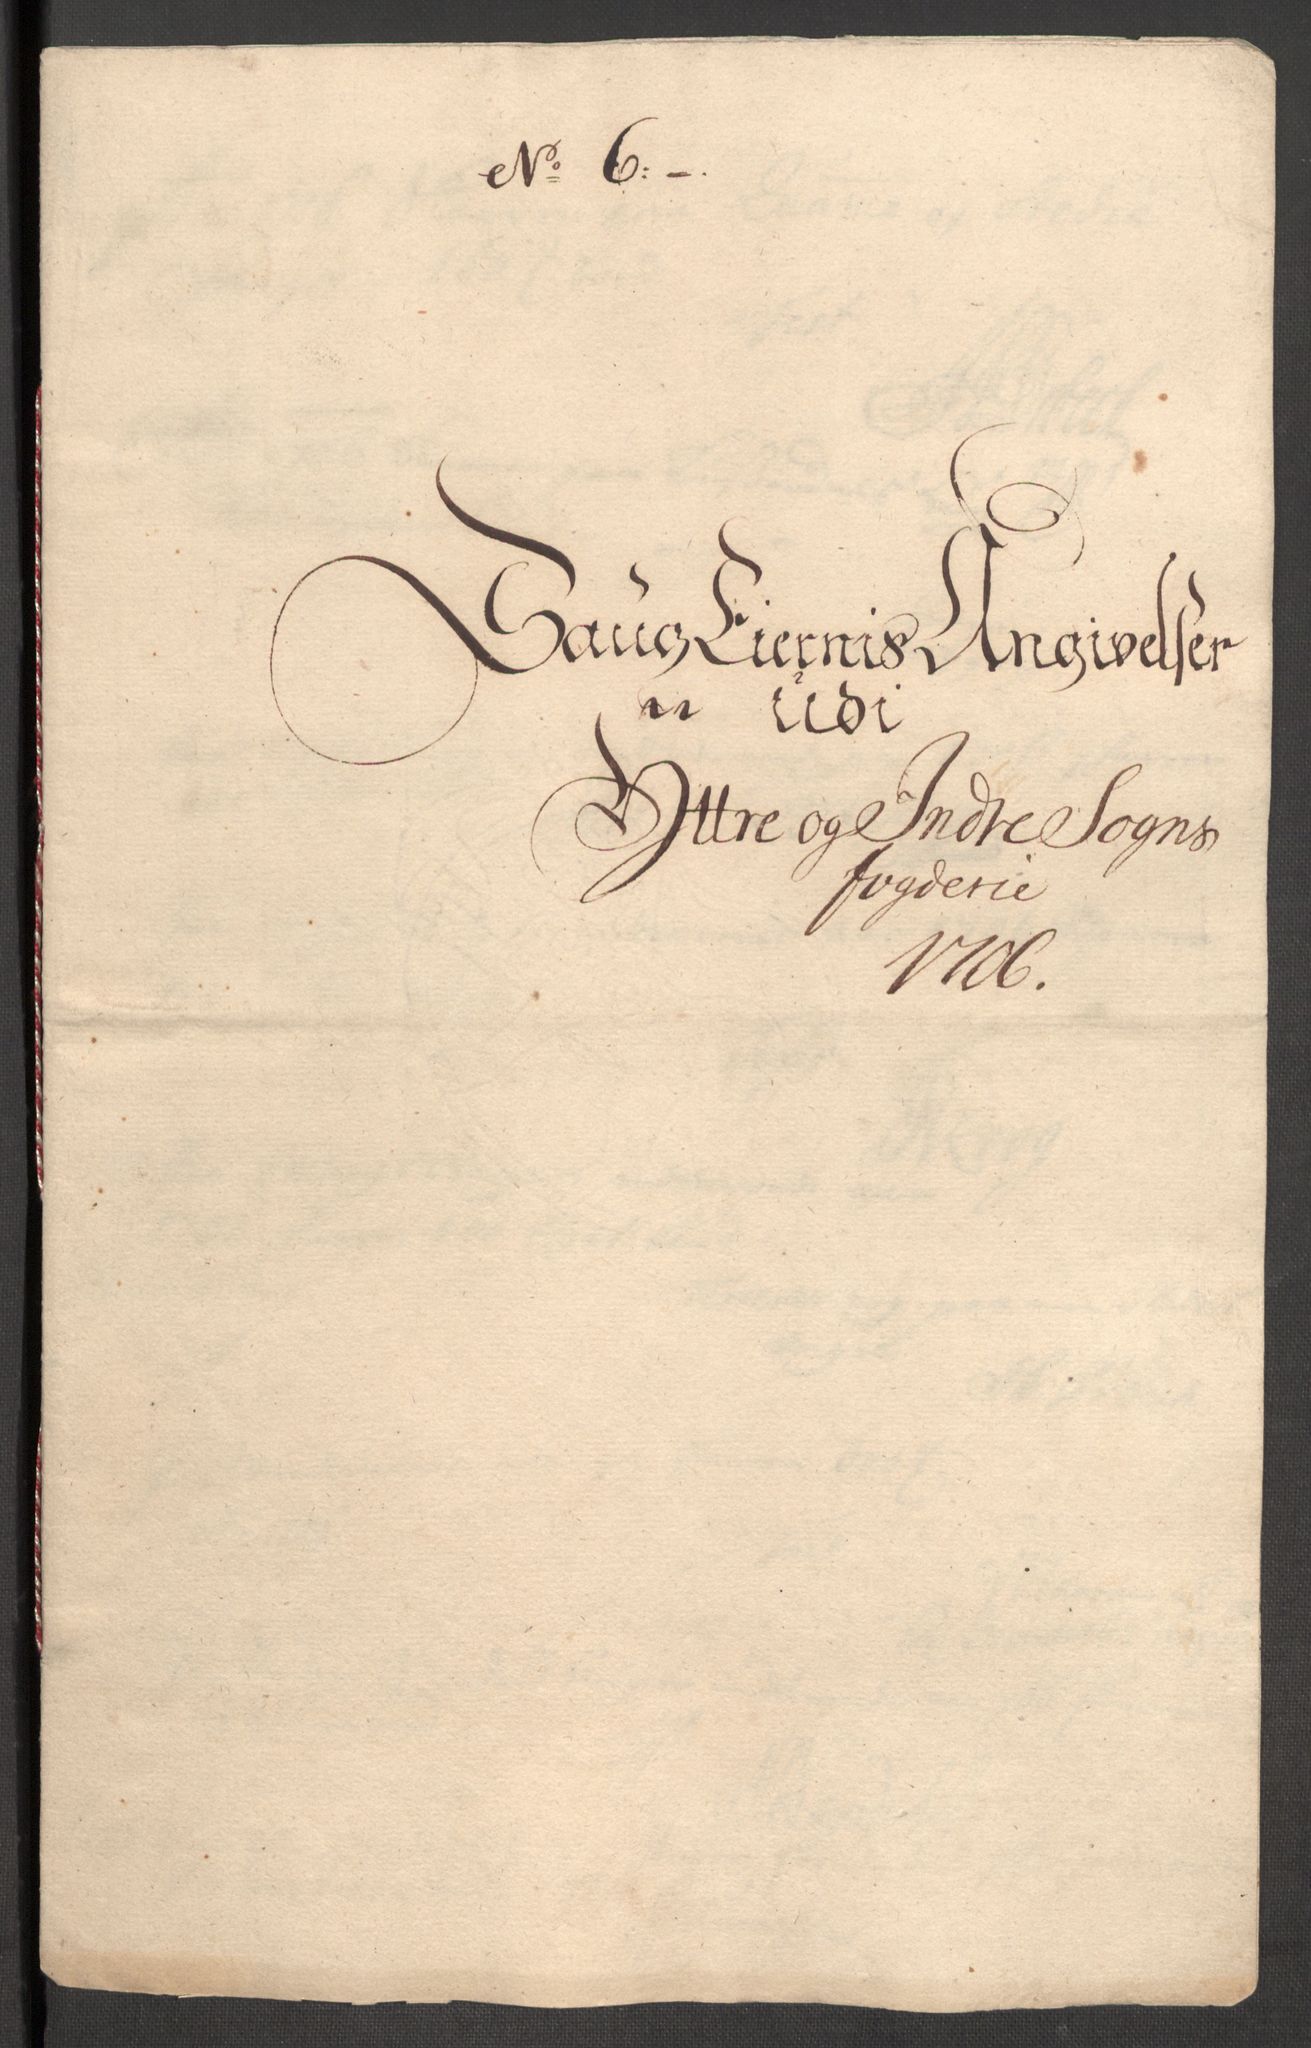 No 6:-.
Saug Eiernis Angivelser
udi
Yttre og Indre Sogns
fogderie
1706.